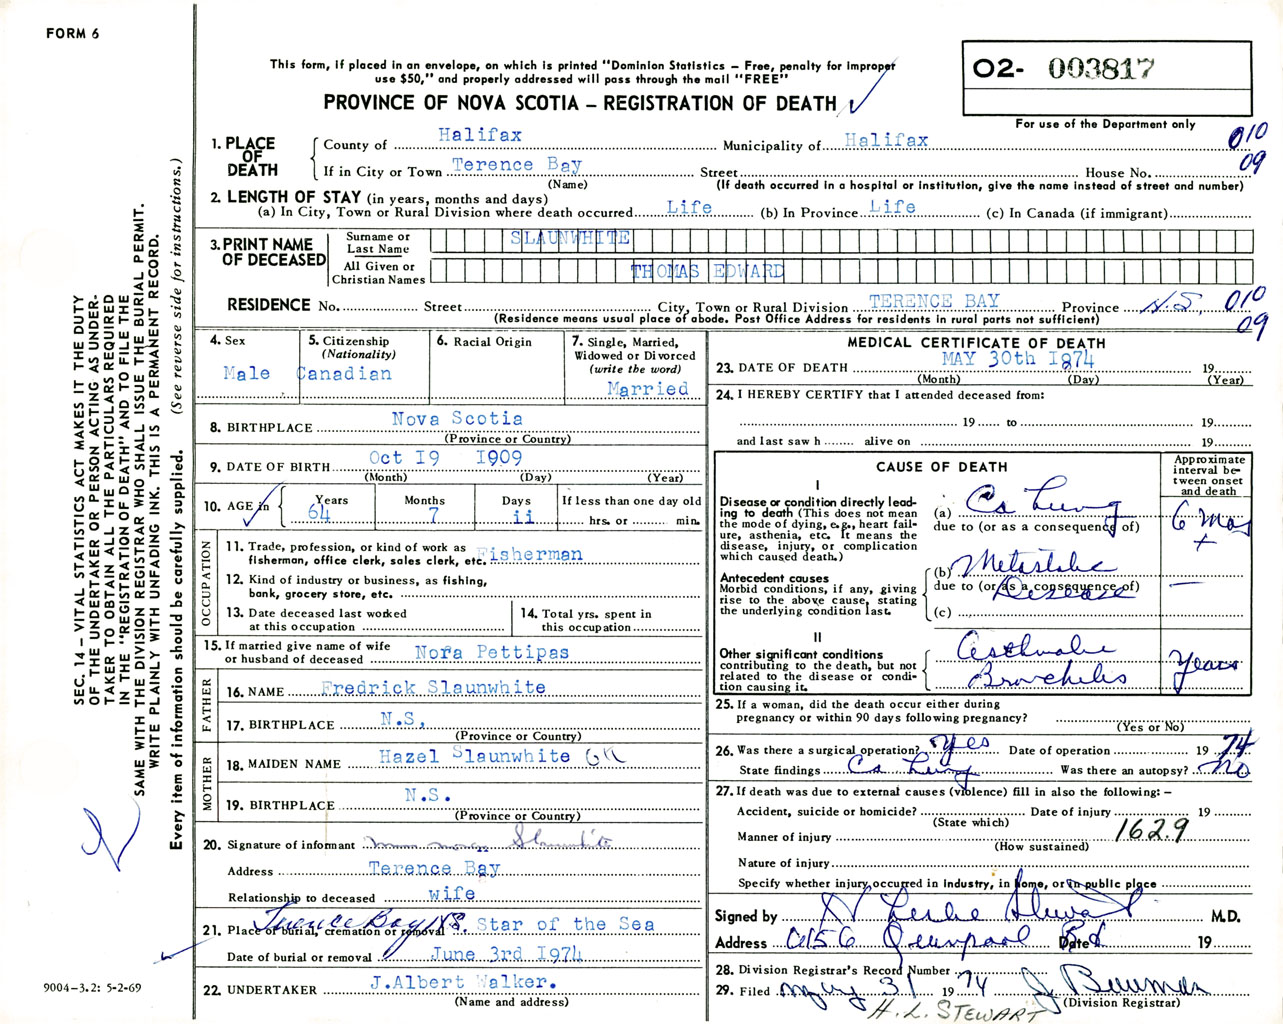 FORM 6
This form, if placed in an envelope, on which is printed "Dominion Statistics – Free, penalty for improper
use $50," and properly addressed will pass through the mail "FREE"
PROVINCE OF NOVA SCOTIA – REGISTRATION OF DEATH
O2- 003817
For use of the Department only
1. PLACE OF DEATH
County of Halifax Municipality of Halifax 010
If in City or Town Terence Bay Street House No. 09
(Name) (If death occurred in a hospital or institution, give the name instead of street and number)
2. LENGTH OF STAY (in years, months and days)
(a) In City, Town or Rural Division where death occurred Life (b) In Province Life (c) In Canada (if immigrant)
3. PRINT NAME OF DECEASED
Surname or Last Name SLAUNWHITE
All Given or Christian Names THOMAS EDWARD
RESIDENCE No. Street City, Town or Rural Division TERENCE BAY Province N.S. 010
(Residence means usual place of abode. Post Office Address for residents in rural parts not sufficient) 09
SEC. 14 – VITAL STATISTICS ACT MAKES IT THE DUTY
OF THE UNDERTAKER OR PERSON ACTING AS UNDER-
TAKER TO OBTAIN ALL THE PARTICULARS REQUIRED
IN THE "REGISTRATION OF DEATH" AND TO FILE THE
SAME WITH THE DIVISION REGISTRAR WHO SHALL ISSUE THE BURIAL PERMIT.
WRITE PLAINLY WITH UNFADING INK. THIS IS A PERMANENT RECORD.
Every item of information should be carefully supplied. (See reverse side for instructions.)
4. Sex Male
5. Citizenship (Nationality) Canadian
6. Racial Origin
7. Single, Married, Widowed or Divorced (write the word) Married
8. BIRTHPLACE Nova Scotia
(Province or Country)
9. DATE OF BIRTH Oct I9 I909
(Month) (Day) (Year)
10. AGE in Years 64 Months 7 Days ii If less than one day old hrs. or min.
OCCUPATION
11. Trade, profession, or kind of work as
fisherman, office clerk, sales clerk, etc. Fisherman
12. Kind of industry or business, as fishing,
bank, grocery store, etc.
13. Date deceased last worked
at this occupation
14. Total yrs. spent in
this occupation
15. If married give name of wife
or husband of deceased Nora Pettipas
FATHER
16. NAME Fredrick Slaunwhite
17. BIRTHPLACE N.S,
(Province or Country)
MOTHER
18. MAIDEN NAME Hazel Slaunwhite
19. BIRTHPLACE N.S.
(Province or Country)
20. Signature of informant Slaunwhite
Address Terence Bay
Relationship to deceased wife
21. Place of burial, cremation or removal Terence Bay N.S. Star of the Sea
Date of burial or removal June 3rd I974
22. UNDERTAKER J.Albert Walker.
(Name and address)
9004-3.2: 5-2-69
MEDICAL CERTIFICATE OF DEATH
23. DATE OF DEATH MAY 30th I974 19
(Month) (Day) (Year)
24. I HEREBY CERTIFY that I attended deceased from:
19 to 19
and last saw h alive on 19
CAUSE OF DEATH
Approximate interval between onset and death
I
Disease or condition directly lead-
ing to death (This does not mean
the mode of dying, e.g., heart fail-
ure, asthenia, etc. It means the
disease, injury, or complication
which caused death.)
(a) Ca Lung 6 Mos +
due to (or as a consequence of)
Antecedent causes
Morbid conditions, if any, giving
rise to the above cause, stating
the underlying condition last.
(b) Metastatic Disease —
due to (or as a consequence of)
(c)
II
Other significant conditions
contributing to the death, but not
related to the disease or condi-
tion causing it.
Asthmatic Bronchitis years
25. If a woman, did the death occur either during
pregnancy or within 90 days following pregnancy?
(Yes or No)
26. Was there a surgical operation? yes Date of operation 19 74
State findings Ca Lung Was there an autopsy? No
27. If death was due to external causes (violence) fill in also the following: –
Accident, suicide or homicide? Date of injury 19
(State which)
Manner of injury 162.9
(How sustained)
Nature of injury
Specify whether injury occurred in industry, in home, or in public place
Signed by H Leslie Stewart M.D.
Address Date 19
28. Division Registrar's Record Number
29. Filed May 31 19 74
(Division Registrar)
H. L. STEWART